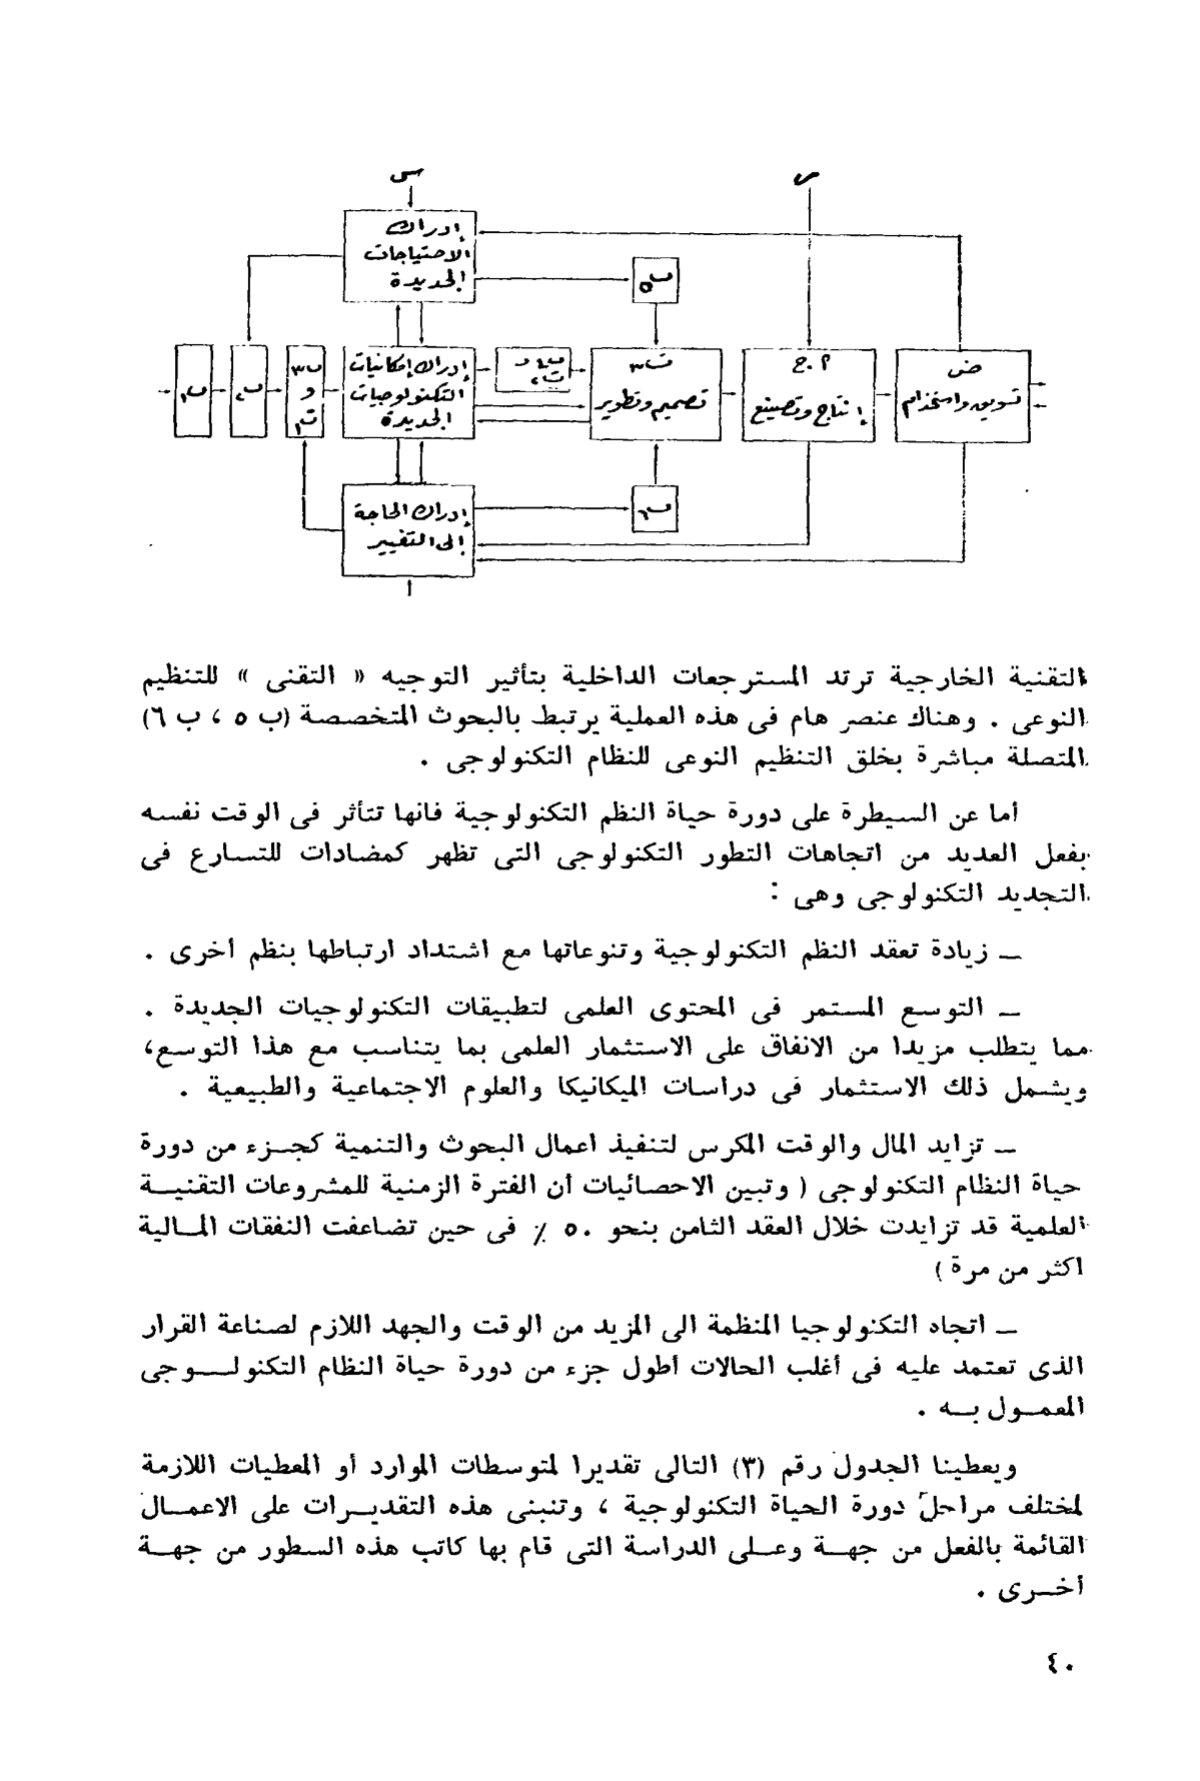 س
إدراك
الاحتياجات
الجديدة
ب٥
ب١
ب٢
ب٣
و
ت١
إدراك إمكانيات
التكنولوجيات
الجديدة
ب٤ و
ت٢
ت٣
تصميم وتطوير
م.ج
إنتاج وتصنيع
ض
تسويق واستخدام
إدراك الحاجة
إلى التغيير
ب٦
التقنية الخارجية ترتد المسترجعات الداخلية بتأثير التوجيه « التقنى » للتنظيم
النوعى . وهناك عنصر هام فى هذه العملية يرتبط بالبحوث المتخصصة (ب ٥ ، ب ٦)
المتصلة مباشرة بخلق التنظيم النوعى للنظام التكنولوجى .
أما عن السيطرة على دورة حياة النظم التكنولوجية فانها تتأثر فى الوقت نفسه
بفعل العديد من اتجاهات التطور التكنولوجى التى تظهر كمضادات للتسارع فى
التجديد التكنولوجى وهى :
ــ زيادة تعقد النظم التكنولوجية وتنوعاتها مع اشتداد ارتباطها بنظم أخرى .
ــ التوسع المستمر فى المحتوى العلمى لتطبيقات التكنولوجيات الجديدة .
مما يتطلب مزيدا من الانفاق على الاستثمار العلمى بما يتناسب مع هذا التوسع،
ويشمل ذلك الاستثمار فى دراسات الميكانيكا والعلوم الاجتماعية والطبيعية .
ــ تزايد المال والوقت المكرس لتنفيذ اعمال البحوث والتنمية كجزء من دورة
حياة النظام التكنولوجى ( وتبين الاحصائيات أن الفترة الزمنية للمشروعات التقنية
العلمية قد تزايدت خلال العقد الثامن بنحو ٥٠ ٪ فى حين تضاعفت النفقات المالية
اكثر من مرة )
ــ اتجاه التكنولوجيا المنظمة الى المزيد من الوقت والجهد اللازم لصناعة القرار
الذى تعتمد عليه فى أغلب الحالات أطول جزء من دورة حياة النظام التكنولوجى
المعمول به .
ويعطينا الجدول رقم (٣) التالى تقديرا لمتوسطات الموارد أو المعطيات اللازمة
لمختلف مراحل دورة الحياة التكنولوجية ، وتنبنى هذه التقديرات على الاعمال
القائمة بالفعل من جهة وعلى الدراسة التى قام بها كاتب هذه السطور من جهة
أخرى .
٤٠